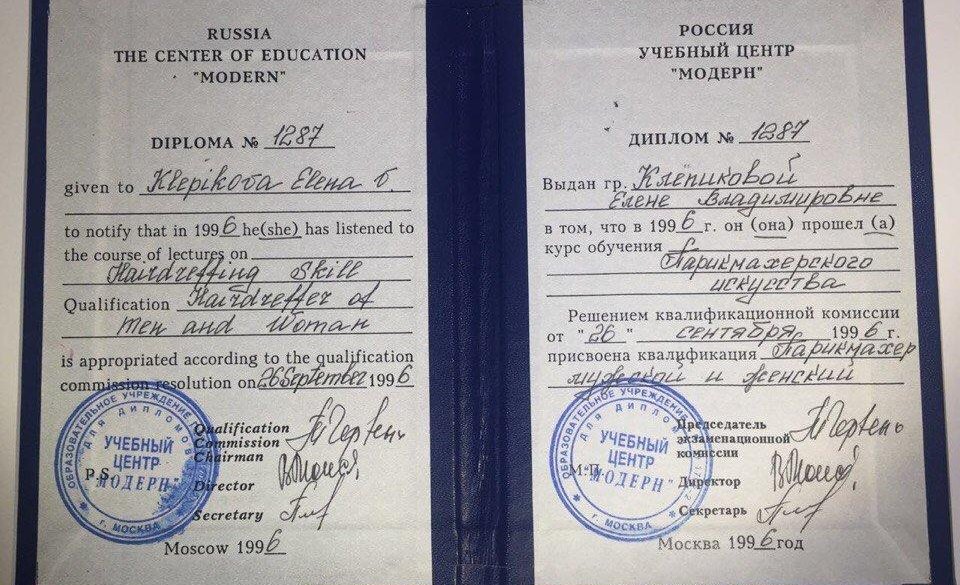 RUSSIA
THE CENTER OF EDUCATION
"MODERN"
DIPLOMA № 1287
given to Klepikova Elena V.
to notify that in 1996 he(she) has listened to
the course of lectures on
Hairdreffing Skill
Qualification Hairdreffer of
men and Woman
is appropriated according to the qualification
commission resolution on 26 September 1996
Qualification
Commission
Chairman
P.S.
Director
Secretary
Moscow 1996
ОБРАЗОВАТЕЛЬНОЕ УЧРЕЖДЕНИЕ
ДЛЯ ДИПЛОМОВ
УЧЕБНЫЙ
ЦЕНТР
"МОДЕРН"
г. МОСКВА
РОССИЯ
УЧЕБНЫЙ ЦЕНТР
"МОДЕРН"
ДИПЛОМ № 1287
Выдан гр. Клепиковой
Елене Владимировне
в том, что в 1996 г. он (она) прошел (а)
курс обучения
Парикмахерского
искусства
Решением квалификационной комиссии
от "26" сентября 1996 г.
присвоена квалификация Парикмахер
мужской и женский
Председатель
экзаменационной
комиссии
М.П.
Директор
Секретарь
Москва 1996 год
ОБРАЗОВАТЕЛЬНОЕ УЧРЕЖДЕНИЕ
ДЛЯ ДИПЛОМОВ
УЧЕБНЫЙ
ЦЕНТР
"МОДЕРН"
г. МОСКВА